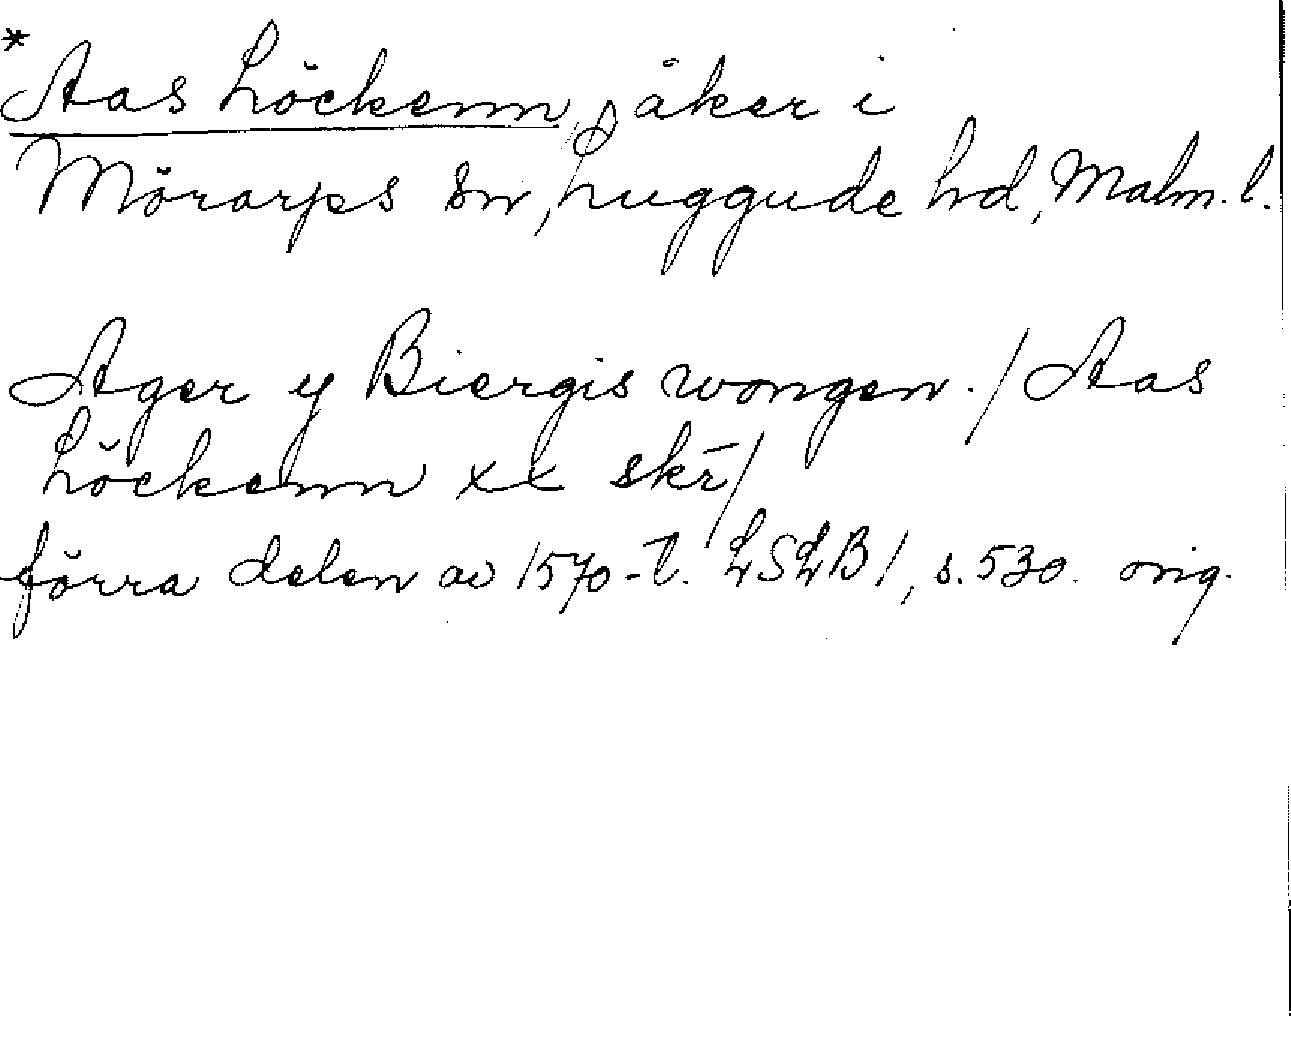 *
Aas Löckenn, åker i
Mörarps sn, Luggude hd, Malm. l.
Ager y Biergis wongen. / Aas
Löckenn xx skr̄/
förra delen av 1570-t. LSLB 1, s. 530. orig.